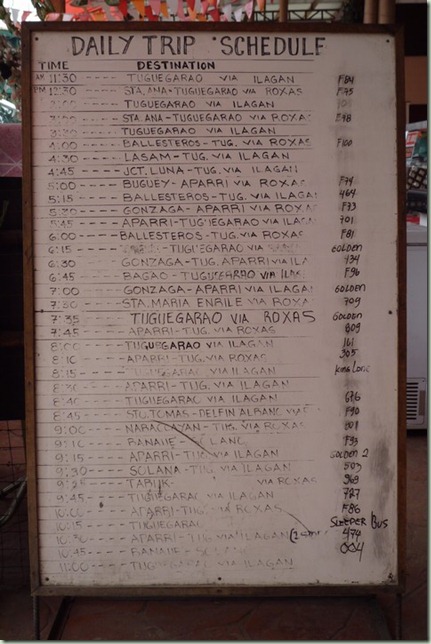 DAILY TRIP SCHEDULE
TIME DESTINATION
AM 11:30 ---- TUGUEGARAO VIA ILAGAN F84
PM 12:30 ---- STA. ANA-TUGUEGARAO VIA ROXAS F75
---- TUGUEGARAO VIA ILAGAN
---- STA. ANA-TUGUEGARAO VIA ROXAS
3:30 ---- TUGUEGARAO VIA ILAGAN
4:00 ---- BALLESTEROS-TUG. VIA ROXAS F100
4:30 ---- LASAM-TUG. VIA ILAGAN
4:45 ---- JCT. LUNA-TUG. VIA ILAGAN
5:00 ---- BUGUEY-APARRI VIA ROXAS F74
5:15 ---- BALLESTEROS-TUG. VIA ILAGAN 464
5:30 ---- GONZAGA-APARRI VIA ROXAS F73
5:45 ---- APARRI-TUGUEGARAO VIA ILAGAN 701
6:00 ---- BALLESTEROS-TUG. VIA ROXAS F81
6:15 ---- TUGUEGARAO VIA GOLDEN
6:30 ---- GONZAGA-TUG. APARRI VIA ILA 734
6:45 ---- BAGAO-TUGUEGARAO VIA ILAG F96
7:00 ---- GONZAGA-APARRI VIA ILAGAN GOLDEN
7:30 ---- STA. MARIA ENRILE VIA ROXA 709
7:35 TUGUEGARAO VIA ROXAS GOLDEN
7:45 ---- APARRI-TUG. VIA ROXAS 809
8:00 ---- TUGUEGARAO VIA ILAGAN 161
8:10 ---- APARRI-TUG. VIA ROXAS 305
8:15 ---- TUGUEGARAO VIA ILAGAN King Long
8:30 ---- APARRI-TUG. VIA ILAGAN
8:40 ---- TUGUEGARAO VIA ILAGAN 676
8:45 ---- STO. TOMAS-DELFIN ALBANO VIA F90
9:00 ---- TUG. VIA ROXAS 801
9:10 ---- F93
9:15 ---- APARRI-TUG. VIA ILAGAN GOLDEN 2
9:30 ---- SOLANA-TUG. VIA ILAGAN 503
9:25 ---- TABUK VIA ROXAS 968
9:45 ---- TUGUEGARAO VIA ILAGAN 727
10:00 ---- APARRI-TUG. VIA ROXAS F86
10:15 ---- TUGUEGARAO SLEEPER Bus
10:30 ---- APARRI-TUG VIA ILAGAN 474
10:45 ---- 004
11:00 ---- TUGUEGARAO VIA ILAGAN